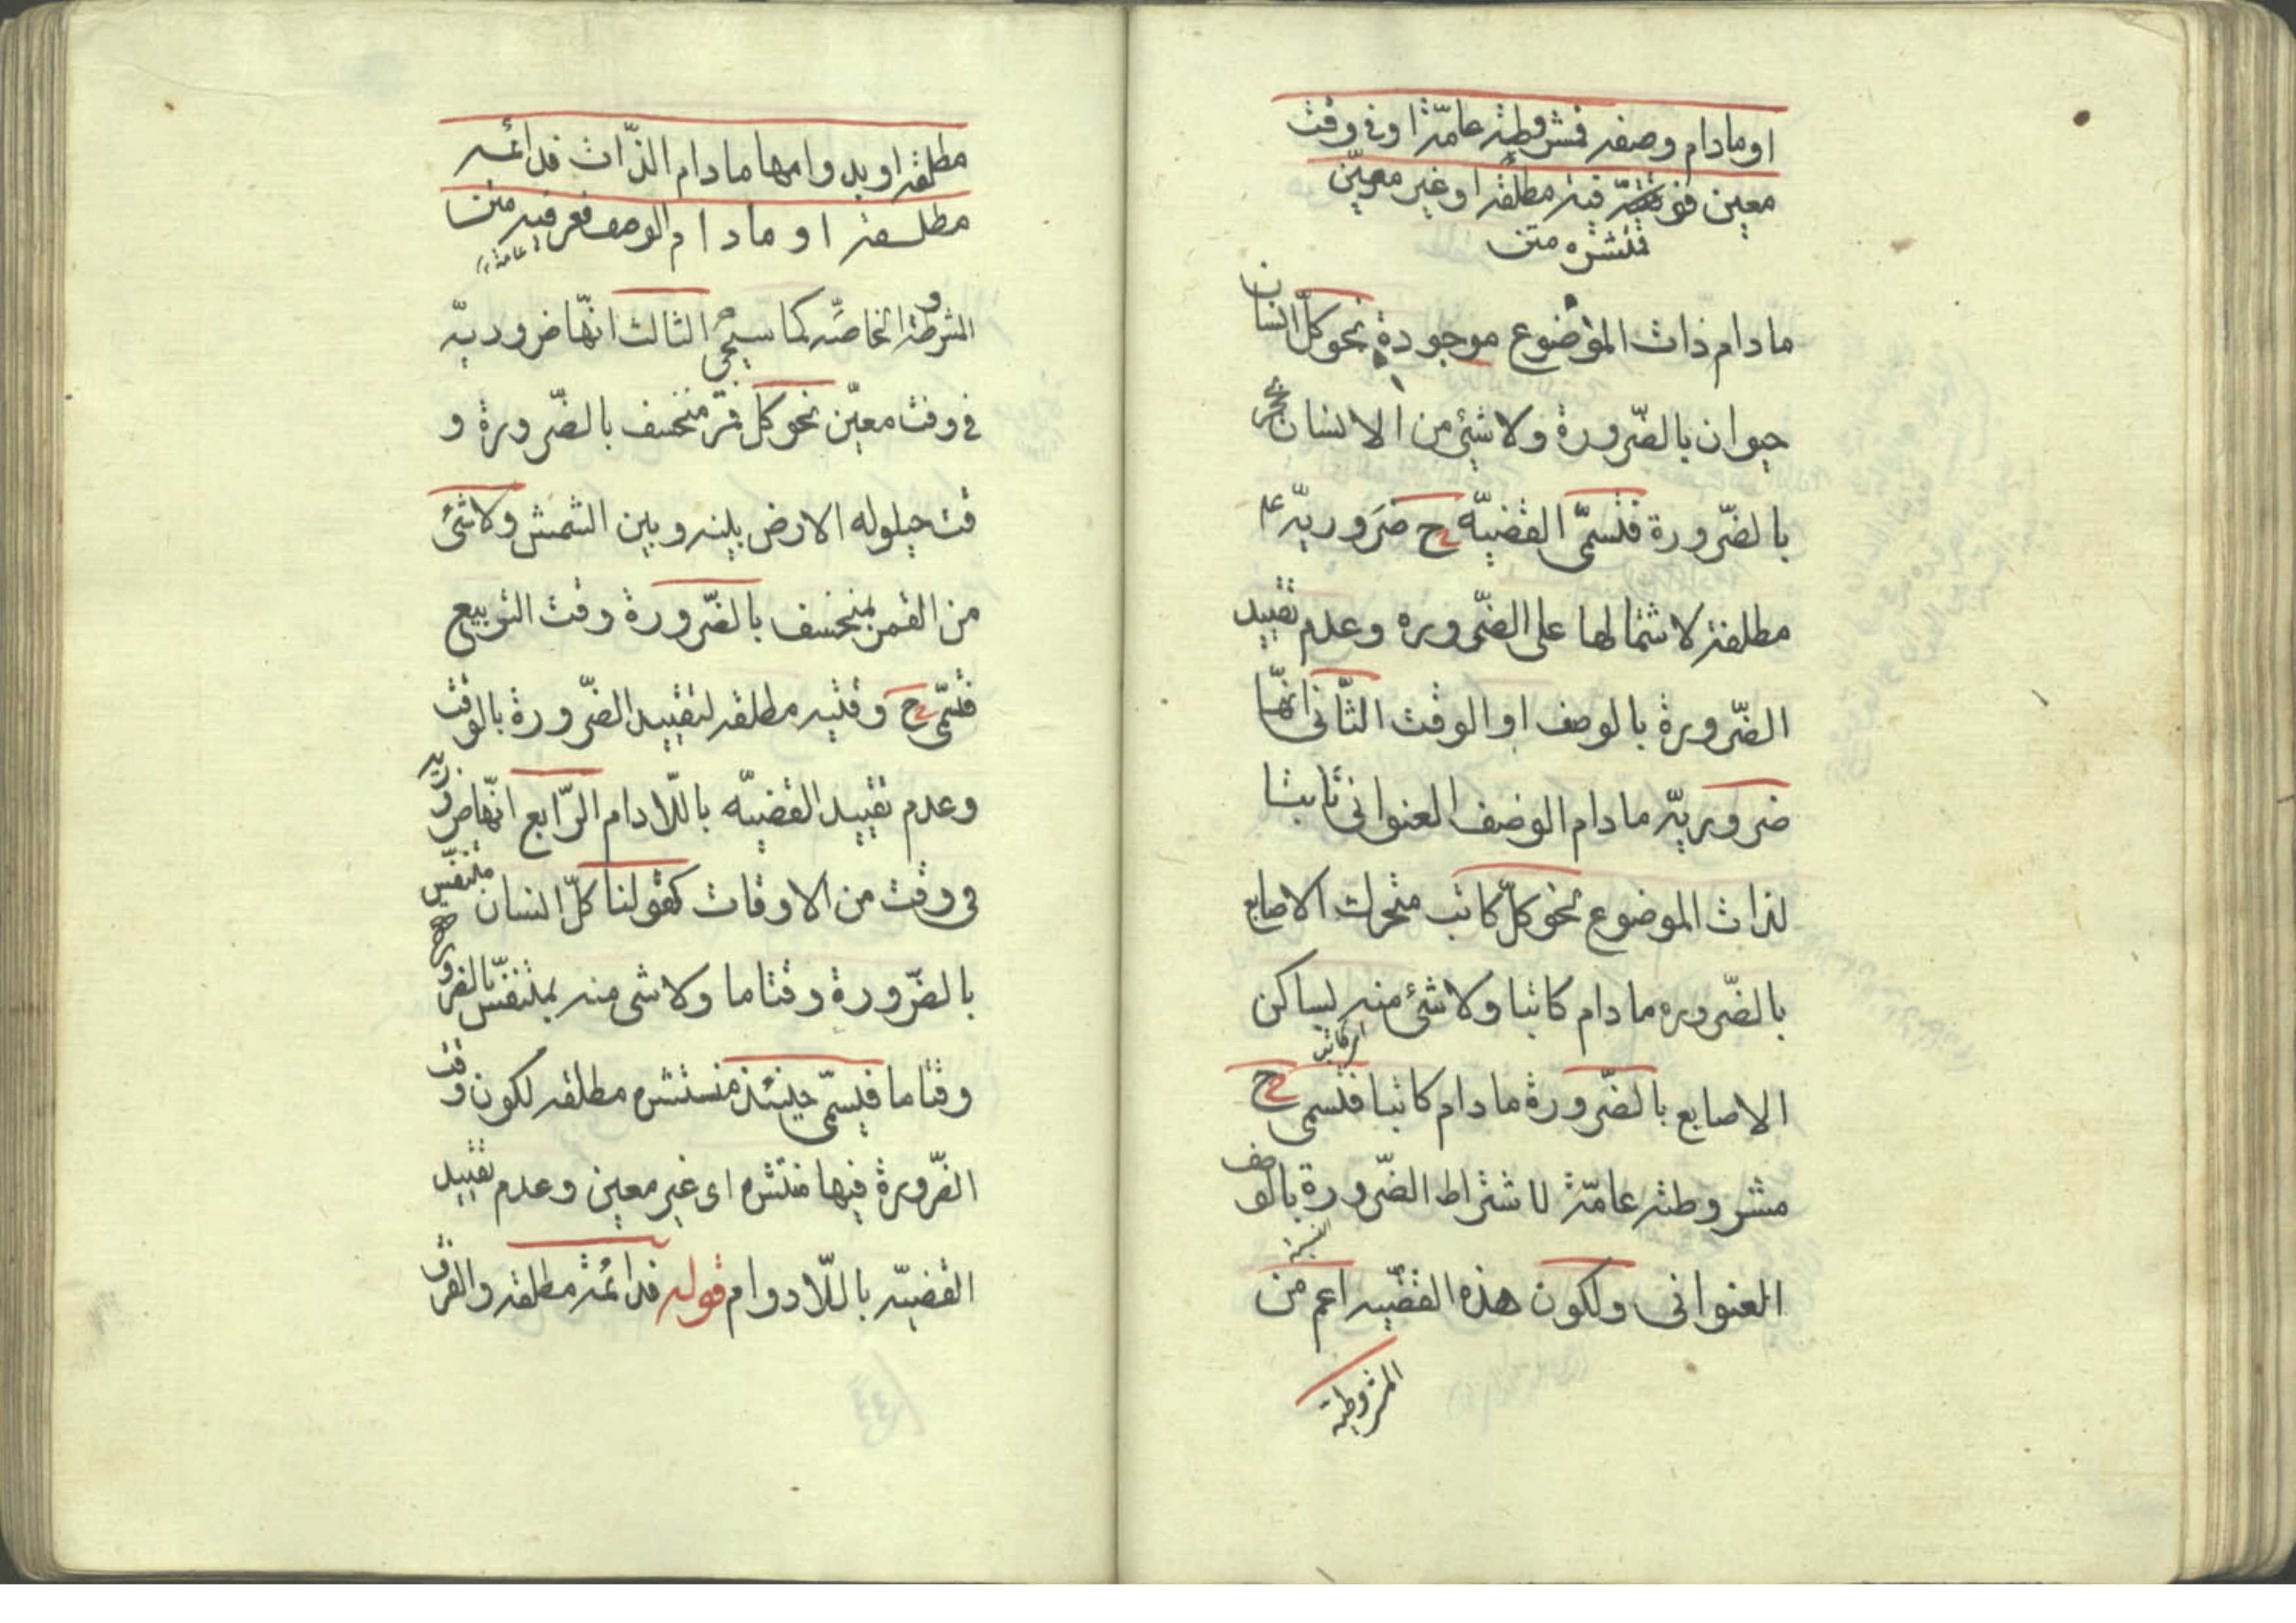 او مادام وصفه فمشروطة عامّة او في وقت
معين فوقتيّة مطلقة او غير معيّن
فمنتشره متن
مادام ذات الموضوع موجودة نحو كلّ انسان
حيوان بالضّرورة ولا شئ من الانسان بحجر
بالضّرورة فتسمّى القضيّه ح ضروريّه
مطلقة لاشتمالها على الضّروره وعدم تقييد
الضّرورة بالوصف او الوقت الثّانى انّها
ضروريّه مادام الوصف العنوانى ثابتا
لذات الموضوع نحو كلّ كاتب متحرك الاصابع
بالضّروره مادام كاتبا ولا شئ منه بساكن
الاصابع بالضّرورة مادام كاتبا فتسمى ح
مشروطة عامّة لاشتراط الضّرورة بالوصف
العنوانى ولكون هذه القضيّه اعم من
المشروطة
مطلقة او بدوامها مادام الذّات فدائمه
مطلقة او مادام الوصف فعرفيه متن
عامة
المشروطة الخاصّه كما سيجئ الثالث انّها ضروريّه
فى وقت معيّن نحو كل قمر منخسف بالضّرورة و
قت حيلوله الارض بينه وبين الشمس ولا شئ
من القمر بمنخسف بالضّرورة وقت التربيع
فتسمّى ح وقتيه مطلقه لتقييد الضّرورة بالوقت
وعدم تقييد القضيّه باللّادام الرّابع انّها ضروريه
فى وقت من الاوقات كقولنا كلّ انسان متنفّس
بالضّرورة وقتاما ولا شى منه بمتنفّس بالضرورة
وقتاما فيسمّى حينئذ منستشره مطلقه لكون وقت
الضّرورة فيها منتشره اى غير معين وعدم تقييد
القضيّه باللّادوام قوله فدائمة مطلقة والفرق